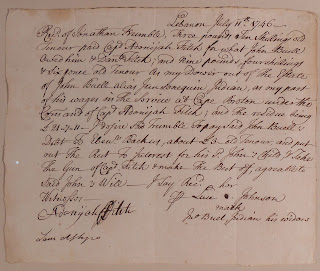 Lebanon July 11th 1746
Recd of Jonathan Trumble, Three pounds & Ten Shillings old
Tenour paid Capt Adonijah Fitch for what John Buell
Owed him & Danl Fitch; and Nine pounds four shillings
& Six pence old Tenour As my Dower out of the Estate
of John Buell alias Indian, as any part
of his wages in the Service at Cape Breton under the
Comand of Capt Adonijah Fitch; and the residue being
£21-7-11- I desire Sd Trumble to pay Said John Buell's
Debt to Ebenr Backus, about £3 old Tenour, and put
out the Rest to Interest for his Sn John & Also I take
the Gun of Capt Fitch & make the Best off, agreeable to
Said John's Will — I Say Recd
her
Witness
Pr Luce Johnson
Adonijah Fitch
mark
Jno Buel Indian his widow